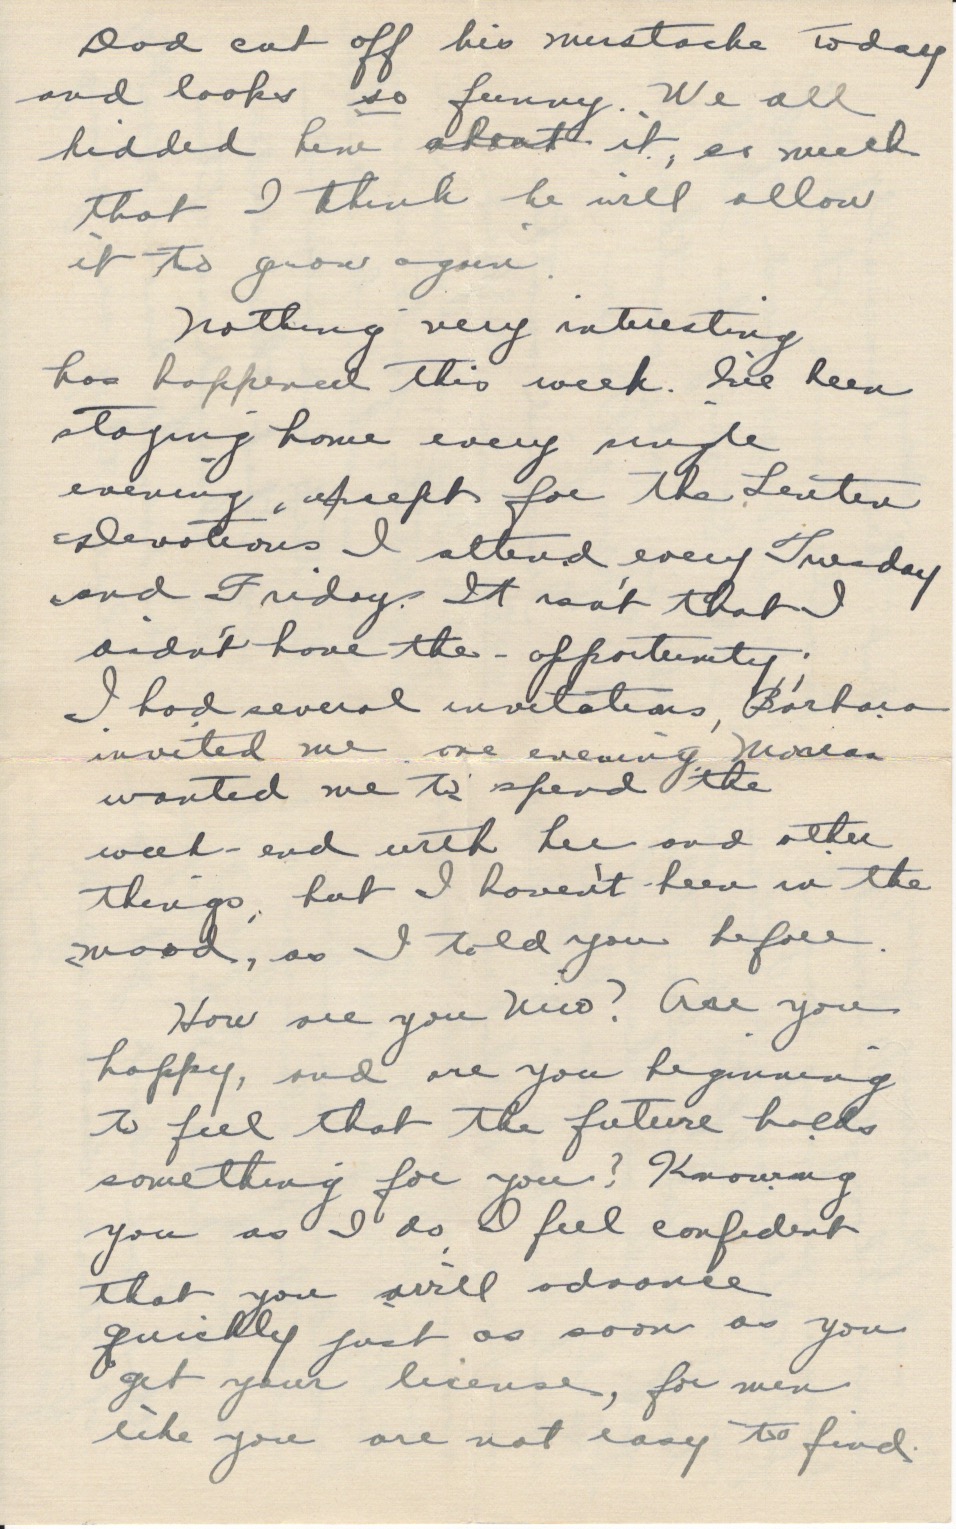 Dad cut off his mustache today
and looks so funny. We all
kidded him about it, so much
that I think he will allow
it to grow again.
Nothing very interesting
has happened this week. I've been
staying home every single
evening, except for the Lenten
Devotions I attend every Tuesday
and Friday. It isn't that I
didn't have the - opportunity;
I had several invitations, Barbara
invited me one evening,
wanted me to spend the
week-end with her and other
things, but I haven't been in the
mood, as I told you before.
How are you Nico? Are you
happy, and are you beginning
to feel that the future holds
something for you? Knowing
you as I do, I feel confident
that you will advance
quickly just as soon as you
get your license, for men
like you are not easy to find.